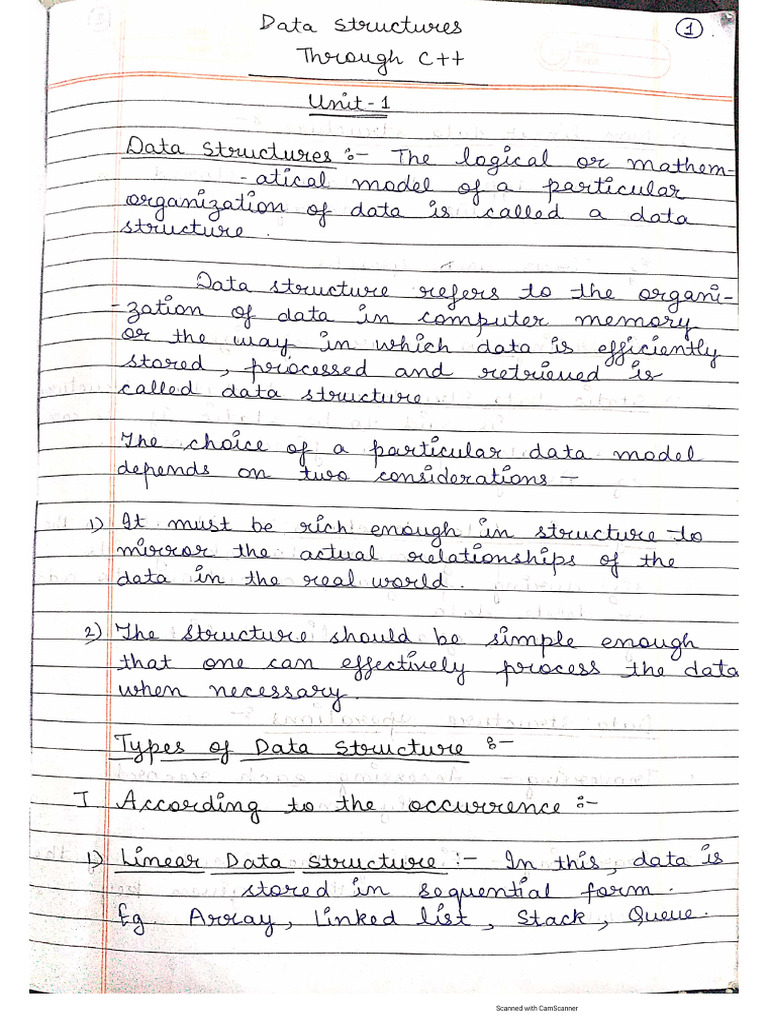 Data Structures
1
Through C++
Unit-1
Data Structures :- The logical or mathem-
-atical model of a particular
organization of data is called a data
structure.
Data structure refers to the organi-
-zation of data in computer memory
or the way in which data is efficiently
stored, processed and retrieved is
called data structure.
The choice of a particular data model
depends on two considerations -
1) It must be rich enough in structure to
mirror the actual relationships of the
data in the real world.
2) The structure should be simple enough
that one can effectively process the data
when necessary.
Types of Data Structure :-
I According to the occurrence :-
1) Linear Data Structure :- In this, data is
stored in sequential form.
Eg. Array, Linked list, Stack, Queue.
Scanned with CamScanner